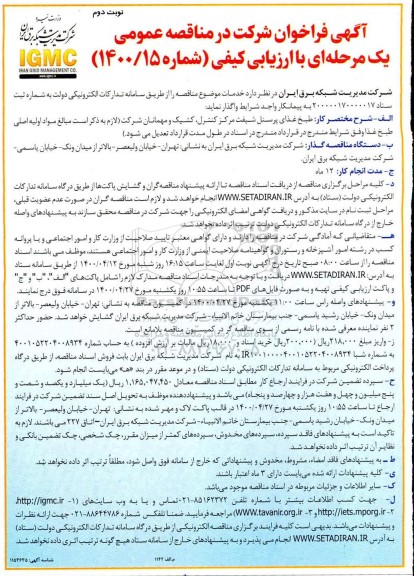 نوبت دوم
آگهی فراخوان شرکت در مناقصه عمومی
یک مرحله‌ای با ارزیابی کیفی (شماره ۱۴۰۰/۱۵)
وزارت نیرو
شرکت مدیریت شبکه برق ایران
IGMC
IRAN GRID MANAGEMENT CO.
شرکت مدیریت شبکه برق ایران در نظر دارد خدمات موضوع مناقصه را از طریق سامانه تدارکات الکترونیکی دولت به شماره ثبت
ستاد به پیمانکار واجد شرایط واگذار نماید:
الف-شرح مختصر کار: طبخ غذای پرسنل شیفت مرکز کنترل، کشیک و مهمانان شرکت (لازم به ذکر است مبالغ مواد اولیه اصلی
طبخ غذا وفق شرایط مندرج در قرارداد مندرج در اسناد در طول مدت قرارداد تعدیل می شود.)
ب-دستگاه مناقصه گذار: شرکت مدیریت شبکه برق ایران به نشانی: تهران- خیابان ولیعصر- بالاتر از میدان ونک- خیابان یاسمی-
شرکت مدیریت شبکه برق ایران.
ج-مدت انجام کار: ۱۲ ماه
د- کلیه مراحل برگزاری مناقصه از دریافت اسناد مناقصه تا ارائه پیشنهاد مناقصه‌گران و گشایش پاکت‌ها از طریق درگاه سامانه تدارکات
الکترونیکی دولت (ستاد) به آدرس WWW.SETADIRAN.IR انجام خواهد شد و لازم است مناقصه گران در صورت عدم عضویت قبلی،
مراحل ثبت نام در سایت مذکور و دریافت گواهی امضای الکترونیکی را جهت شرکت در مناقصه محقق سازند به پیشنهادهای واصله
خارج از درگاه سامانه تدارکات الکترونیکی دولت ترتیب اثر داده نخواهد شد.
هـ- متقاضیانی که آمادگی شرکت در مناقصه را دارند و دارای گواهی معتبر تایید صلاحیت از وزارت کار و امور اجتماعی و یا پروانه
کسب در رشته امور آشپزی و رستوران و گواهینامه صلاحیت ایمنی از وزارت کار و امور اجتماعی هستند، موظف می باشند اسناد
مناقصه را از ساعت ۰۸:۰۰ صبح تاریخ درج آگهی نوبت اول لغایت ساعت ۱۶:۱۵ روز شنبه مورخ ۱۴۰۰/۰۴/۱۲ از طریق سامانه ستاد
به آدرس WWW.SETADIRAN.IR دریافت و با توجه به مندرجات اسناد مناقصه مدارک لازم را شامل پاکت‌های "الف"، "ب" و "ج"
و پاکت ارزیابی کیفی تهیه و به صورت فایل‌های PDF تا ساعت ۱۰:۵۵ روز یکشنبه مورخ ۱۴۰۰/۰۴/۲۷ در سامانه فوق درج نمایند.
و- پیشنهادهای واصله راس ساعت ۱۱:۰۰ یکشنبه مورخ ۱۴۰۰/۰۴/۲۷ در کمیسیون مناقصه به نشانی: تهران- خیابان ولیعصر- بالاتر از
میدان ونک- خیابان رشید یاسمی- جنب بیمارستان خاتم الانبیاء- شرکت مدیریت شبکه برق ایران گشایش خواهد شد. حضور حداکثر
۲ نفر نماینده معرفی شده با نامه رسمی از سوی مناقصه گر در کمیسیون مناقصه بلامانع است.
ز- واریز مبلغ ۲۱۸,۰۰۰ ریال (۲۰۰,۰۰۰ ریال خرید اسناد و ۱۸,۰۰۰ ریال مالیات بر ارزش افزوده) به حساب شماره
به شماره شبا به نام شرکت مدیریت شبکه برق ایران بابت فروش اسناد مناقصه، از طریق درگاه
پرداخت الکترونیکی مربوط به سامانه تدارکات الکترونیکی دولت (ستاد) و در موعد مقرر در بند «هـ» می‌بایست انجام شود.
ح- سپرده تضمین شرکت در فرایند ارجاع کار مطابق اسناد مناقصه معادل ۱,۱۶۵,۰۴۷,۴۵۰ ریال (یک میلیارد و یکصد و شصت و
پنج میلیون و چهل و هفت هزار و چهارصد و پنجاه) می باشد و پیشنهاددهنده موظف به تحویل اصل سند تضمین شرکت در فرایند
ارجاع تا ساعت ۱۰:۵۵ روز یکشنبه مورخ ۱۴۰۰/۰۴/۲۷ در قالب پاکت لاک و مهر شده به نشانی: تهران- خیابان ولیعصر- بالاتر از
میدان ونک- خیابان رشید یاسمی- جنب بیمارستان خاتم الانبیاء- شرکت مدیریت شبکه برق ایران- اتاق ۲۲۷ می باشند. لازم به
تاکید است به پیشنهادهای فاقد سپرده، سپرده‌های مخدوش، سپرده‌های کمتر از میزان مقرر، چک شخصی، چک تضمین بانکی و
نظایر آن ترتیب اثر داده نخواهد شد.
ط- به پیشنهادهای فاقد امضاء، مشروط، مخدوش و پیشنهاداتی که خارج از سامانه فوق واصل شود، مطلقاً ترتیب اثر داده نخواهد شد.
ی- کلیه پیشنهادات ارائه شده می‌بایست دارای ۳ ماه اعتبار باشند.
ک- سایر اطلاعات و جزئیات مربوطه در اسناد مناقصه موجود می‌باشد.
ل- جهت کسب اطلاعات بیشتر با شماره تلفن ۸۵۱۶۲۳۷۲-۰۲۱ تماس و یا به وب سایت‌های (۱- http://igmc.ir،
۲- http://iets.mporg.ir و ۳- www.tavanir.org.ir) مراجعه فرمایید. ضمنا تلفکس شماره ۸۸۶۴۴۷۸۶-۰۲۱ جهت ارائه نظرات
و پیشنهادات می‌باشد. بدیهی است کلیه فرایند برگزاری مناقصه الکترونیکی از طریق درگاه سامانه تدارکات الکترونیکی دولت (ستاد)
به آدرس WWW.SETADIRAN.IR انجام می پذیرد و به پیشنهادهای خارج از سامانه ستاد هیچ گونه ترتیب اثری داده نخواهد شد.
م الف ۱۱۶۲
شناسه آگهی: ۱۱۵۳۶۳۵